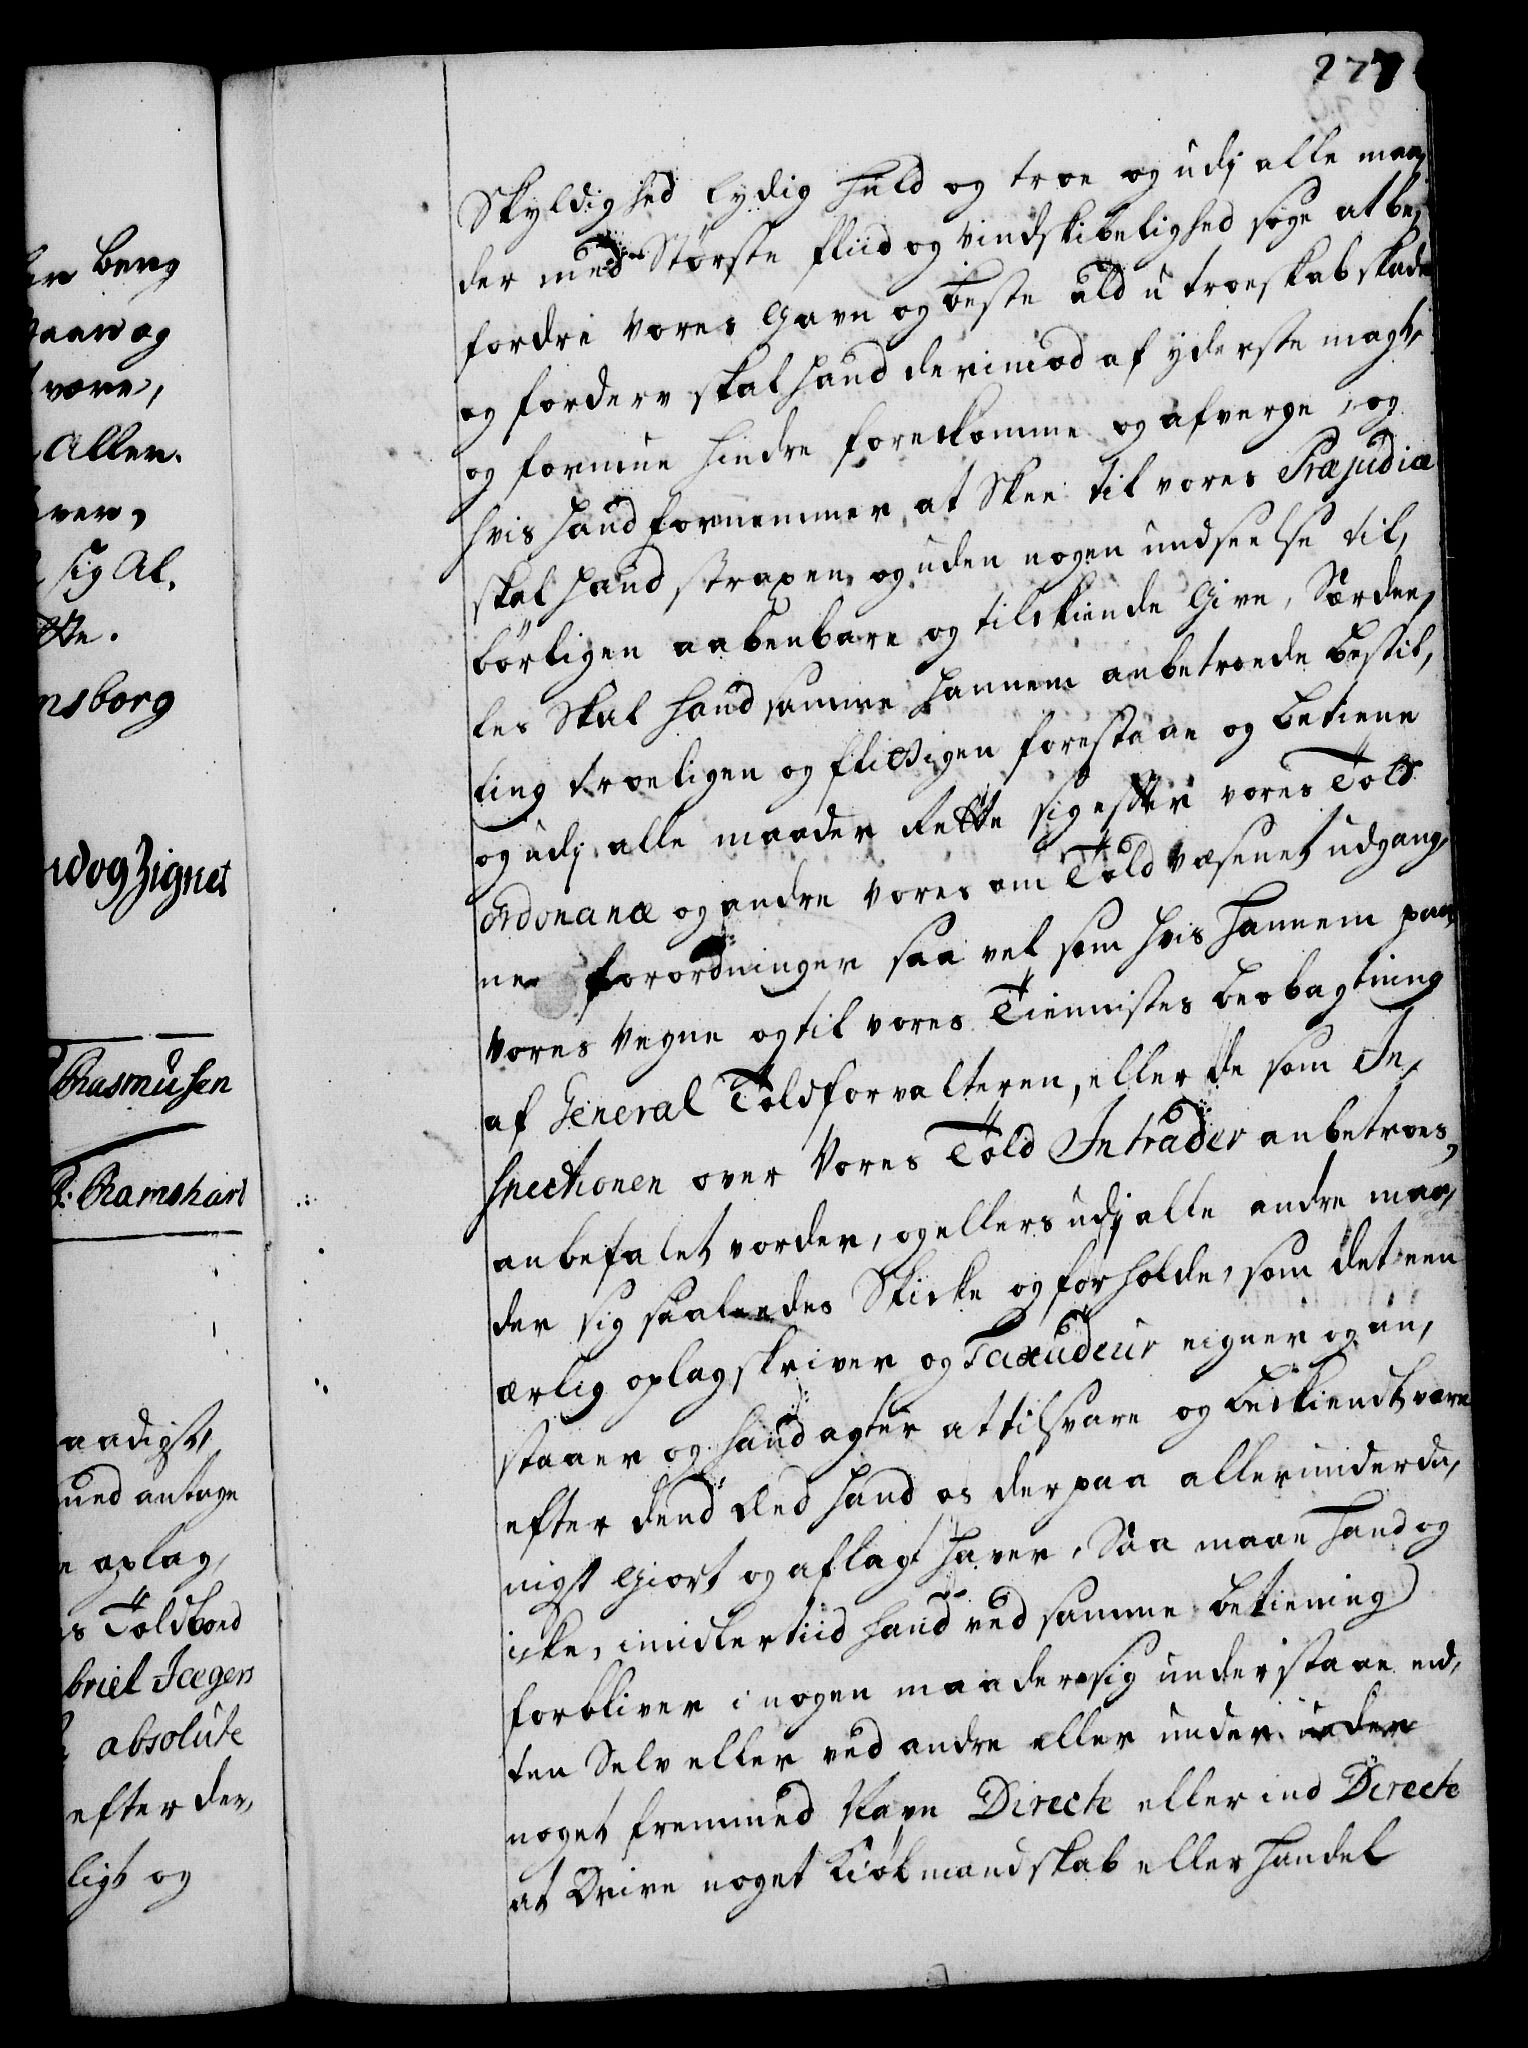 277
Skyldighed lydig huld og troe og udj alle maa,
der med Störste fliid og vindskibelighed söge at be,
fordre vores Gavn og beste ald utroeskab skade
og forderv skal hand derimod af yderste magt
og formue hindre forekomme og afverge, og
hvis hand fornemmer at Skee til vores Præjudice
skal hand straxen og uden nogen undseelse til,
börligen aabenbare og tilkiende Give, Særdee,
les Skal hand samme hannem anbetroede bestil,
ling troeligen og flittigen forestaae og betiene
og udj alle maader Rette sig efter vores Told
ordonance og andre vores om Toldvæsenet udgang,
ne forordninger saa vel som hvis hannem paa
vores vegne og til vores Tiennistes beobagtning
af General Toldforvalteren, eller de som In,
spectionen over vores Told Intrader anbetroes,
anbefalet vorder, og ellers udj alle andre maa,
der sig saaledes Skicke og forholde, som det een
ærlig oplagskriver og Taxudeur eigner og an,
staaer og hand agter at tilsvare og bekiendt være
efter dend Eed hand os derpaa allerunderda,
nigst Giort og aflagt haver, Saa maae hand og
icke, imidlertiid hand ved samme betiening
forbliver i nogen maader sig understaae end,
ten Selv eller ved andre eller under
noget fremmed Navn Directe eller ind Directe
at Drive noget Kiöbmandskab eller handel
en berg
og
være,
Aller.
ver,
sig Al.
tte.
nsborg
og Zignet
Rasmusen
Ramshart
aadigst
med antage
oplag,
s Toldbod
briel Jægers
absolute
efter der,
ligt og